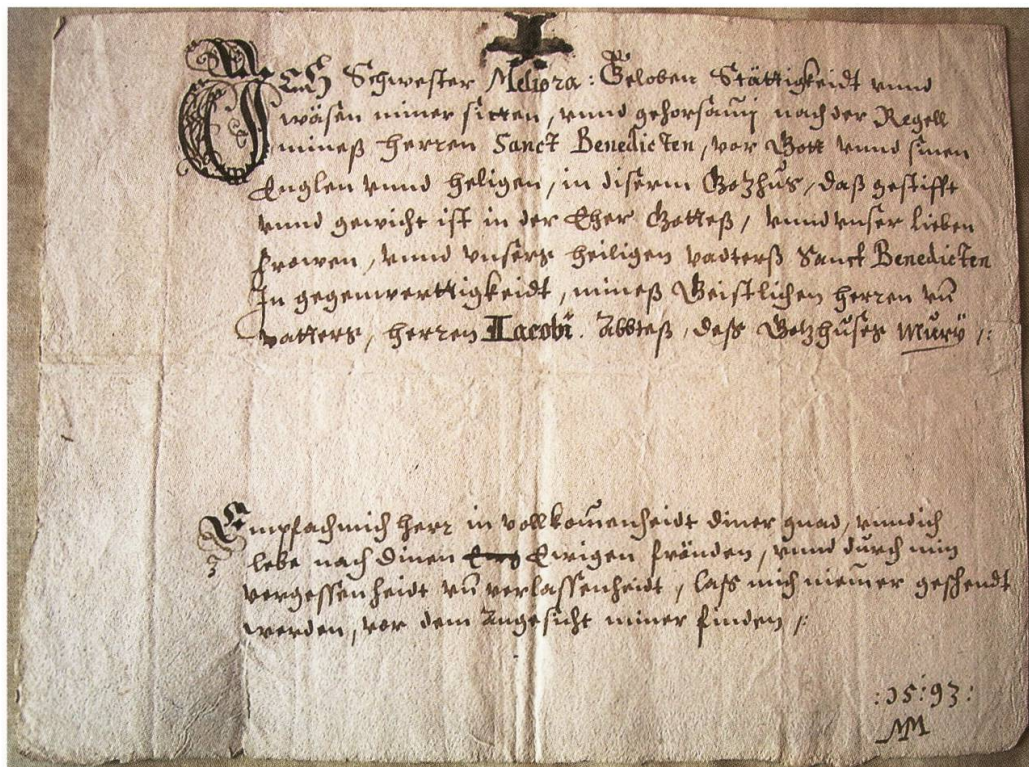 ICH Schwester Meliora: Geloben Stättigkeidt vnnd
wäsen miner sitten, vnnd gehorsami nach der Regell
mineß herren Sanct Benedicten, vor Gott vnnd sinen
Englen vnnd heligen, in diserm Gotzhus, daß gestifft
vnnd gewicht ist in der Eher Gotteß, vnnd vnser lieben
frowen, vnnd vnsers heiligen vatterß Sanct Benedicten
In gegenwerttigkeidt, mineß Geistlichen herren vn̄
vatters, herren Iacobi. Abbteß, deß Gotzhuses Mury /:
Empfach mich herr in vollkom̄enheidt diner gnad, vnnd ich
lebe nach dinen Ewigen fröuden, vnnd durch min
vergessenheidt vn̄ verlassenheidt, laß mich niem̄er geschendt
werden, vor dem Angesicht miner finden /:
:15:93:
MM